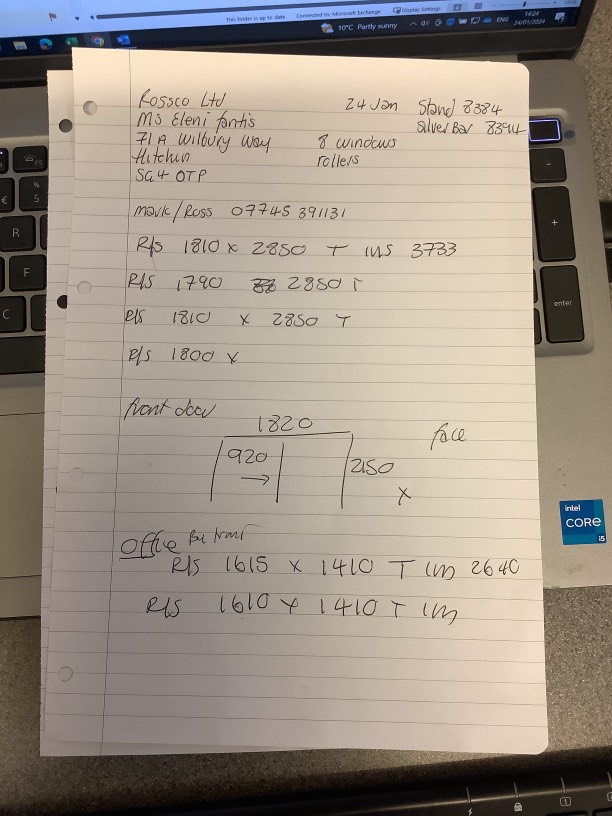 This folder is up to date Connected to: Microsoft Exchange Display Settings
10°C Partly sunny ENG 14:24 24/01/2024
Rossco Ltd 24 Jan Stand 8384
Ms Eleni fantis Silver Bar 8394
71A Wilbury Way 8 windows
Hitchin rollers
SG4 OTP
mark/Ross 07745 391131
R/S 1810 x 2850 T 3733
R/S 1790 2850 T
R/S 1810 x 2850 T
R/S 1800 x
front door
1820 face
920 2150
→ x
Office front
R/S 1615 x 1410 T 1m 2640
R/S 1610 x 1410 T 1m
R
F
C
%
5
€
enter
+
-
intel
CORE
i5